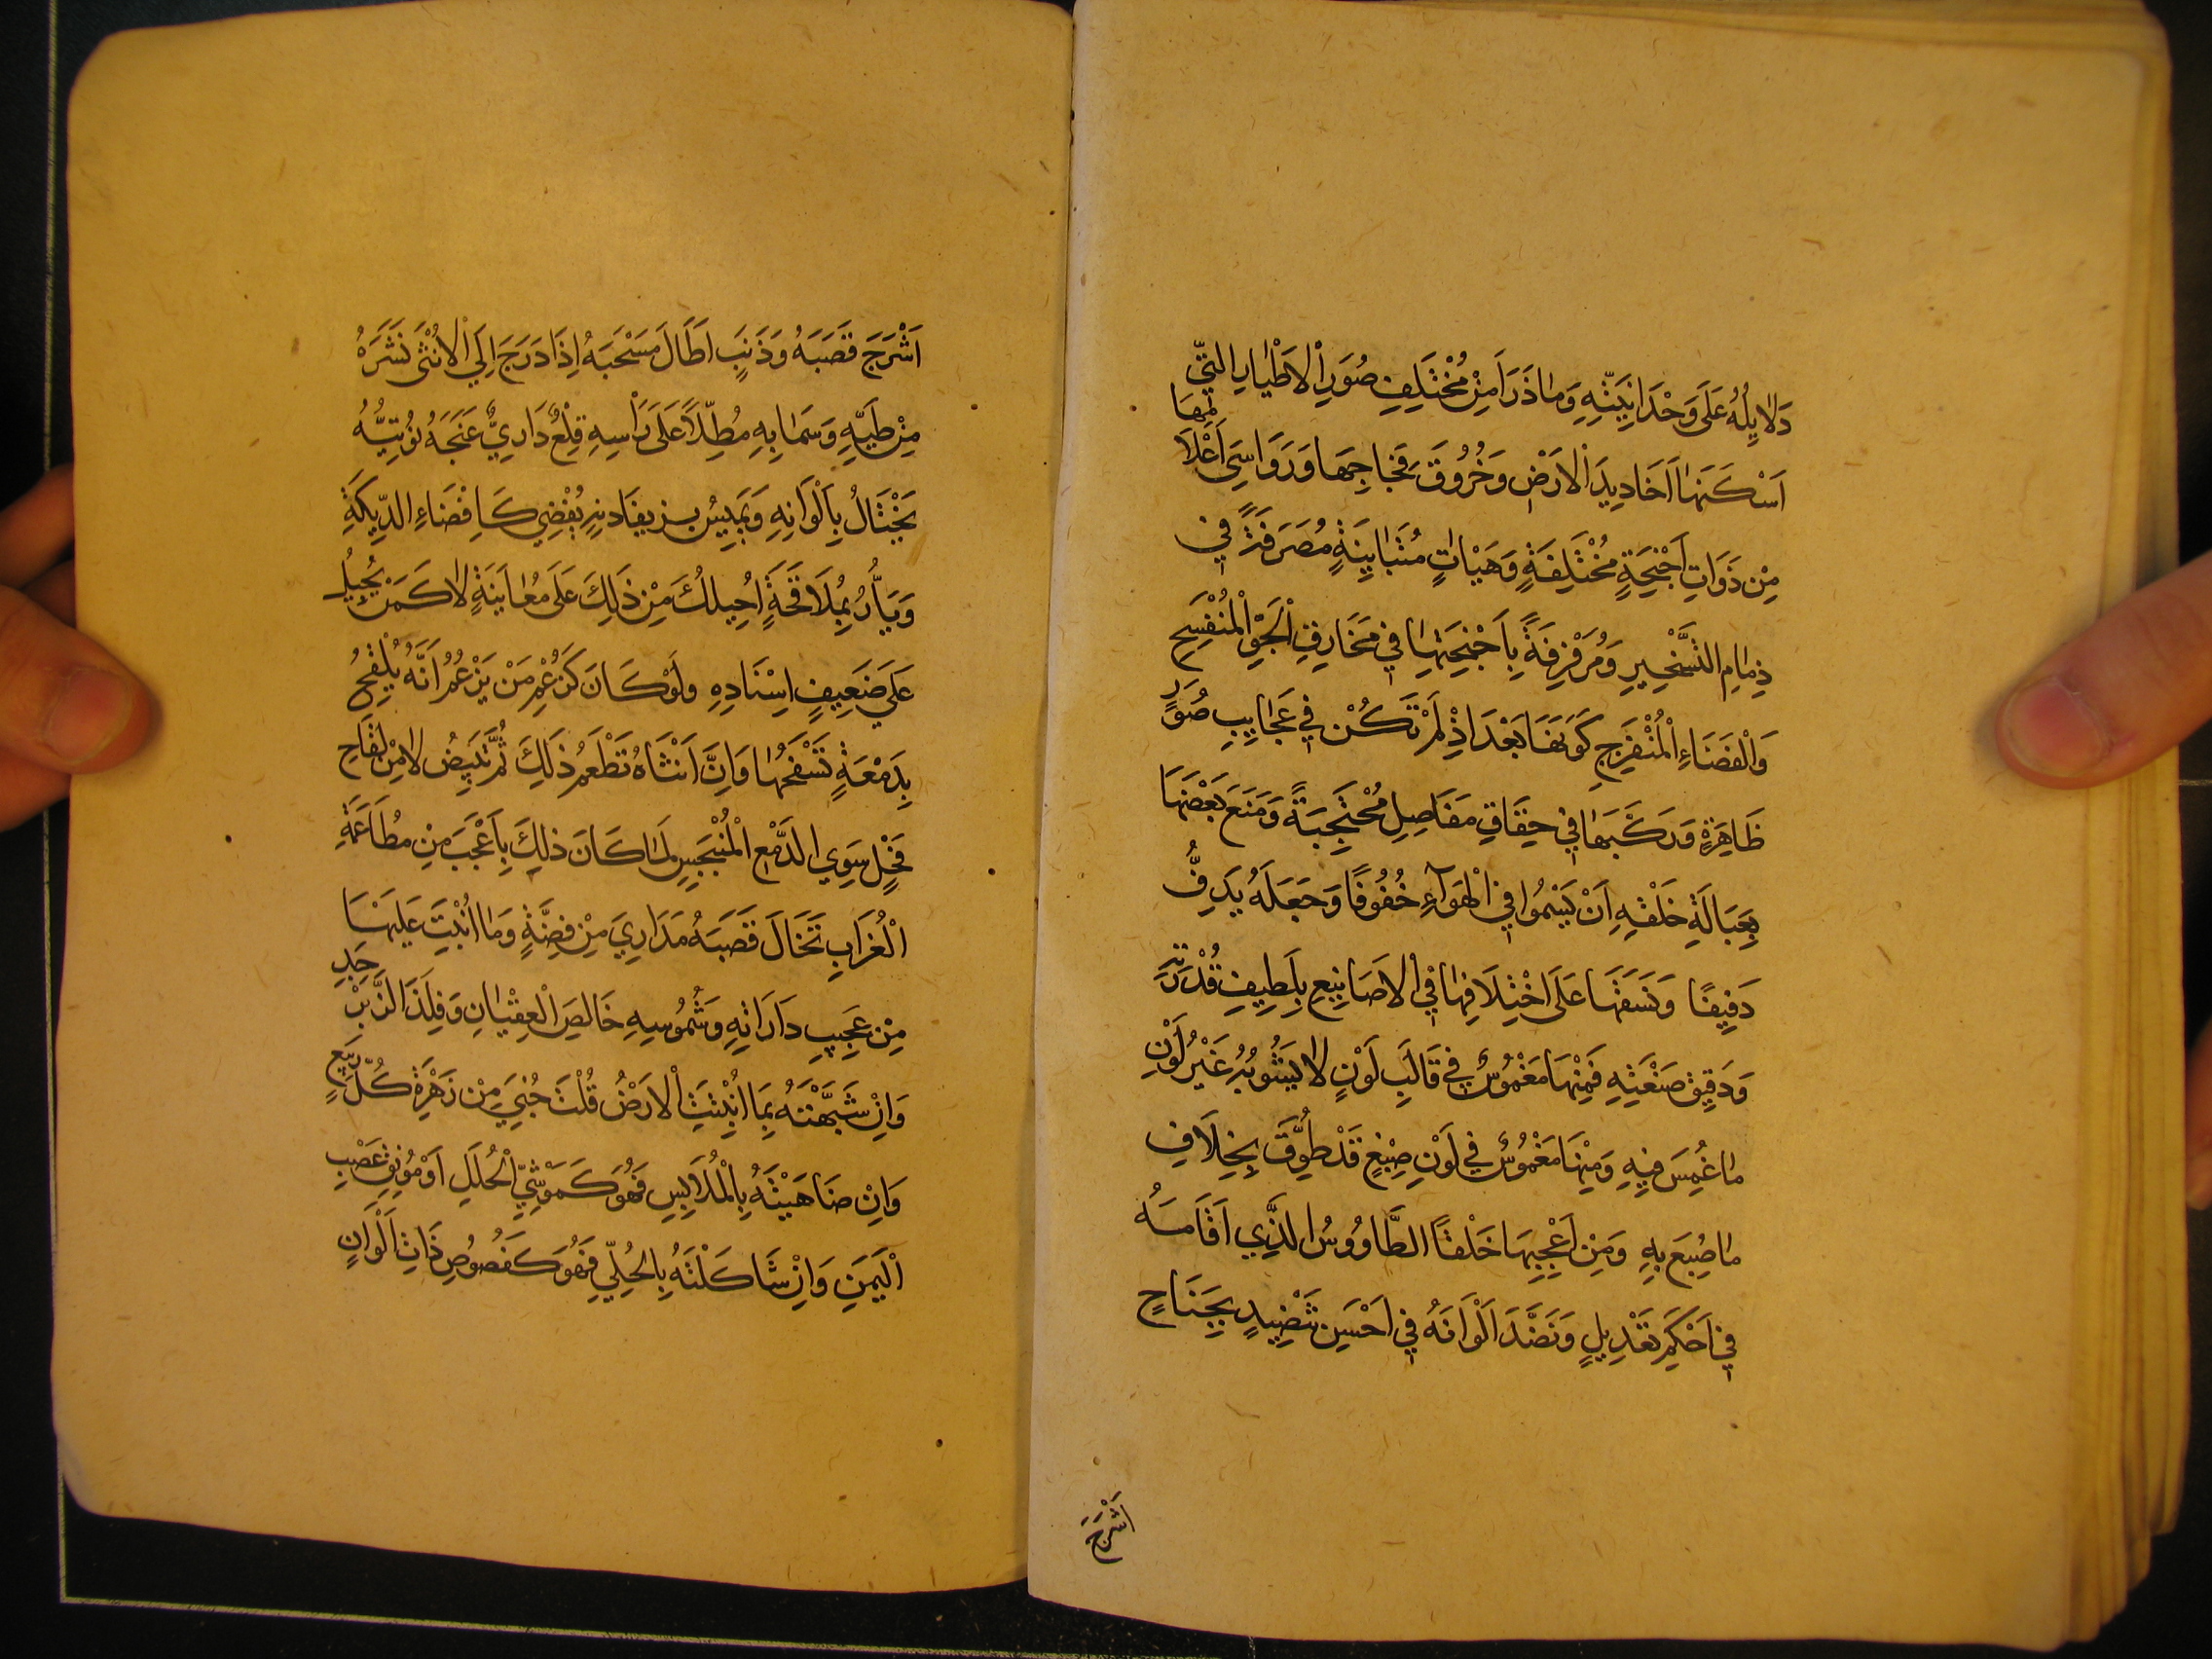 دَلَايِلُهُ عَلَى وَحْدَانِيَّتِهِ وَمَا ذَرَأَ مِنْ مُخْتَلِفِ صُوَرِ الْاَطْيَارِ الَّتِي
اَسْكَنَهَا اَخَادِيدَ الْاَرْضِ وَخُرُوقَ فِجَاجِهَا وَرَوَاسِيَ اَعْلَامِهَا
مِنْ ذَوَاتِ اَجْنِحَةٍ مُخْتَلِفَةٍ وَهَيْاتٍ مُتَبَايِنَةٍ مُصَرَّفَةً فِي
زِمَامِ التَّسْخِيرِ وَمُرَفْرِفَةً بِاَجْنِحَتِهَا فِي مَخَارِقِ الْجَوِّ الْمُنْفَسِحِ
وَالْفَضَاءِ الْمُنْفَرِجِ كَوَّنَهَا بَعْدَ اِذْ لَمْ تَكُنْ فِي عَجَايِبِ صُوَرٍ
ظَاهِرَةٍ وَرَكَّبَهَا فِي حِقَاقِ مَفَاصِلِ مُحْتَجِبَةً وَمَنَعَ بَعْضَهَا
بِعَبَالَةِ خَلْقِهِ اَنْ يَسْمُوا فِي الْهَوَآءِ خُفُوفًا وَجَعَلَهُ يَدِفُّ
دَفِيفًا وَنَسَقَهَا عَلَى اخْتِلَافِهَا فِي الْاَصَابِيعِ بِلَطِيفِ قُدْرَتِهِ
وَدَقِيقِ صَنْعَتِهِ فَمِنْهَا مَغْمُوسٌ فِي قَالَبِ لَوْنٍ لَا يَشُوبُهُ غَيْرُ لَوْنِ
مَا غُمِسَ فِيهِ وَمِنْهَا مَغْمُوسٌ فِي لَوْنِ صِبْغٍ قَدْ طُوِّقَ بِخِلَافِ
مَا صُبِغَ بِهِ وَمِنْ اَعْجَبِهَا خَلْقًا الطَّاوُوسُ الَّذِي اَقَامَهُ
فِي اَحْكَمِ تَعْدِيلٍ وَنَضَّدَ اَلْوَانَهُ فِي اَحْسَنِ تَنْضِيدٍ بِجَنَاحٍ
اَشْرَجَ
اَشْرَجَ قَصَبَهُ وَذَنَبٍ اَطَالَ مَسْحَبَهُ اِذَا دَرَجَ اِلَي الْاُنْثَى نَشَرَهُ
مِنْ طَيِّهِ وَسَمَا بِهِ مُطِلًّا عَلَى رَاْسِهِ قِلْعُ دَارِيٍّ عَنَجَهُ نُوتِيُّهُ
يَخْتَالُ بِاَلْوَانِهِ وَيَمِيسُ بِزَيَفَانِهِ يُفْضِي كَاِفْضَاءِ الدِّيَكَةِ
وَيَاُرُّ بِمُلَاقَحَةٍ اُحِيلُكَ مِنْ ذَلِكَ عَلَى مُعَايَنَةٍ لَا كَمَنْ يُحِيلُ
عَلَي ضَعِيفٍ اِسْنَادِهِ وَلَوْ كَانَ كَزَعْمِ مَنْ يَزْعُمُ اَنَّهُ يُلْقِحُ
بِدَمْعَةٍ تَسْفَحُهَا وَاِنَّ اُنْثَاهُ تَطْعَمُ ذَلِكَ ثُمَّ تَبِيضُ لَا مِنْ لِقَاحِ
فَحْلٍ سِوَي الدَّمْعِ الْمُنْبَجِسِ لَمَا كَانَ ذَلِكَ بِاَعْجَبَ مِنْ مُطَاعَمَةِ
الْغُرَابِ تَخَالَ قَصَبَهُ مَدَارِيَ مِنْ فِضَّةٍ وَمَا اُنْبِتَ عَلَيْهَا
مِنْ عَجِيبِ دَارَاتِهِ وَشُمُوسِهِ خَالِصَ الْعِقْيَانِ وَفِلَذَ الزَّبَرْجَدِ
وَاِنْ شَبَّهْتَهُ بِمَا اَنْبَتَتِ الْاَرْضُ قُلْتَ جُنِيَ مِنْ زَهْرَةِ كُلِّ رَبِيعٍ
وَاِنْ ضَاهَيْتَهُ بِالْمُلَابِسِ فَهُوَ كَمَوْشِيِّ الْحُلَلِ اَوْ مُونِقِ عَصْبِ
الْيَمَنِ وَاِنْ شَاكَلْتَهُ بِالْحُلِيِّ فَهُوَ كَفُصُوصِ ذَاتِ اَلْوَانٍ